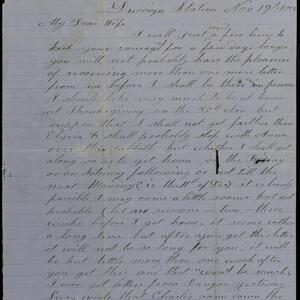 Station Nov 19th
My Dear Wife
I will just a few lines to
keep your courage for a few days longer
you will not probably have the pleasure
of receiving more than one more letter
from me before I shall be there in person
I should like very much to be at home
at Thanksgiving on the but
that I shall not get farther than
I shall probably stop with Anna
over the sabbath but whether I shall get
along so as to get home on the
or on Saturday following or not till the
next Monday (ie the of Dec) it is barely
possible I may come a little sooner but not
probable (but no sooner - two - three
weeks before I get home, it seems rather
a long time but after you get this letter
it will not be so long for you, it will
be but little more than one week after
you get this and that won't be much,
I rec'd yet letter from Bangor yesterday
Lucy wrote that Charles came down the